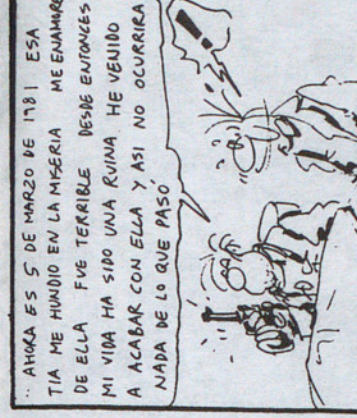 .. AHORA ES 5 DE MARZO DE 1981 ESA
TIA ME HUNDIO EN LA MISERIA ME ENAMORE
DE ELLA FUE TERRIBLE DESDE ENTONCES
MI VIDA HA SIDO UNA RUINA HE VENIDO
A ACABAR CON ELLA Y ASI NO OCURRIRA
NADA DE LO QUE PASÓ
!